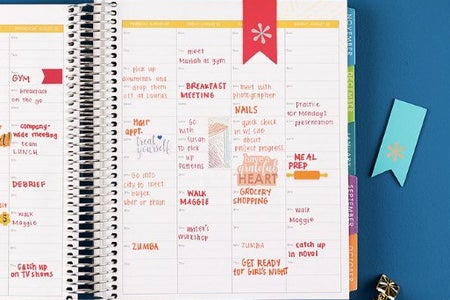 GYM
breakfast
on the go
company-
wide meeting
team
LUNCH
DEBRIEF
walk
Maggie
catch up
on TV shows
pick up
and drop
them
off at
Hair
appt.
treat
yourself
Go into
city to meet
ZUMBA
meet
Mariah at gym
BREAKFAST
MEETING
Go
with
susan
to pick
up
patterns
WALK
MAGGIE
writer's
workshop
meet with
photographer
NAILS
quick check
in w/
about
project progress
grateful
HEART
GROCERY
SHOPPING
ZUMBA
GET READY
for GIRL'S NIGHT
Practice
for Monday's
presentation
MEAL
PREP
walk
Maggie
catch up
in novel
NOVEMBER
SEPTEMBER
OCTOBER